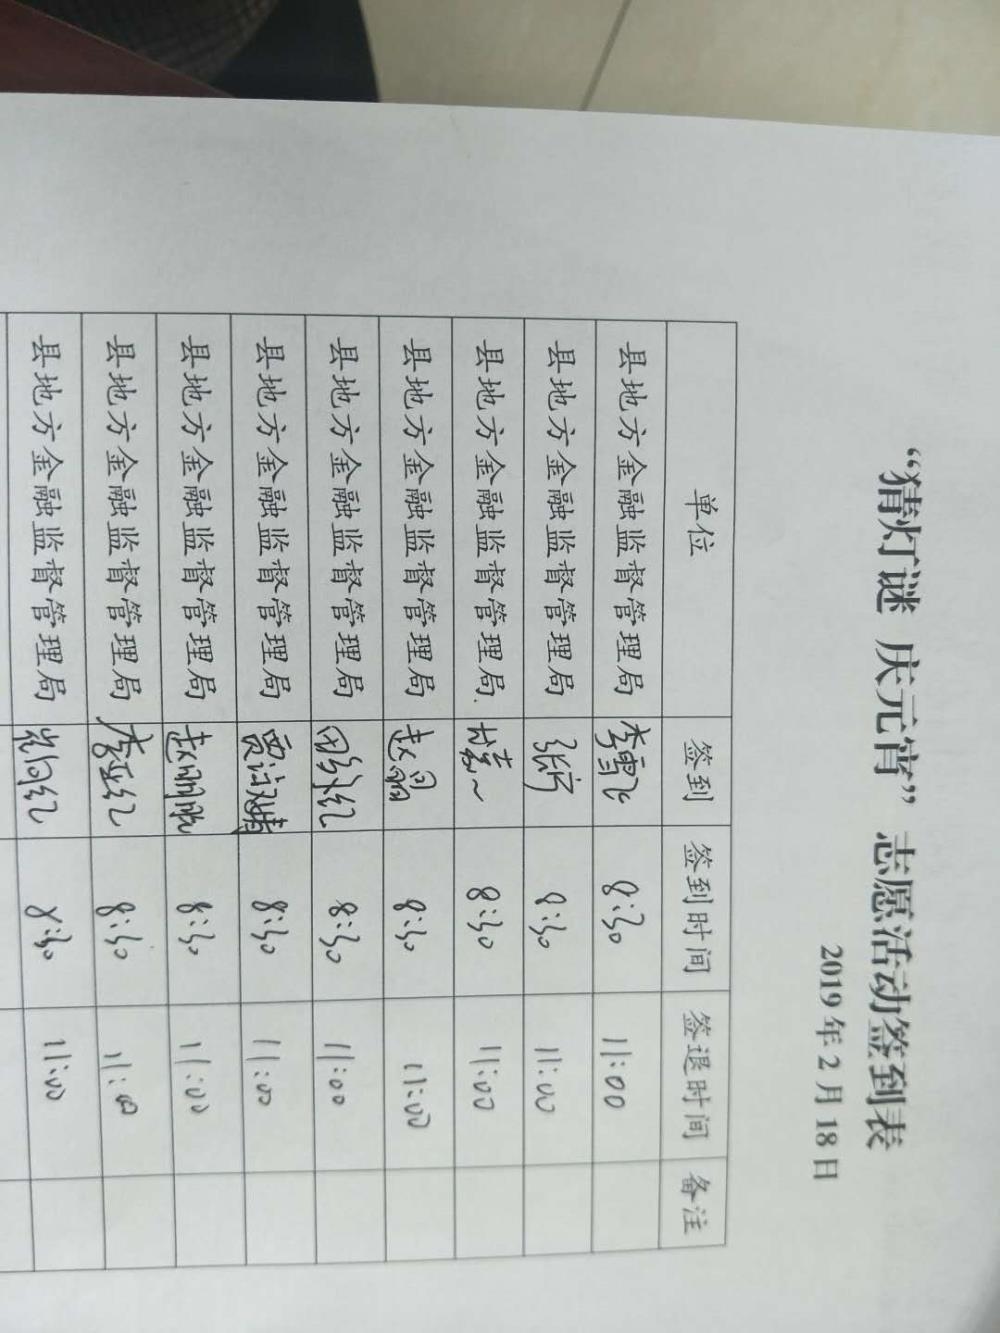 “猜灯谜 庆元宵”志愿活动签到表
2019年2月18日
单位 签到 签到时间 签退时间 备注
县地方金融监督管理局 李雪飞 8:30 11:00
县地方金融监督管理局 8:30 11:00
县地方金融监督管理局 8:30 11:00
县地方金融监督管理局 8:30 11:00
县地方金融监督管理局 8:30 11:00
县地方金融监督管理局 8:30 11:00
县地方金融监督管理局 8:30 11:00
县地方金融监督管理局 李亚红 8:30 11:00
县地方金融监督管理局 8:30 11:00